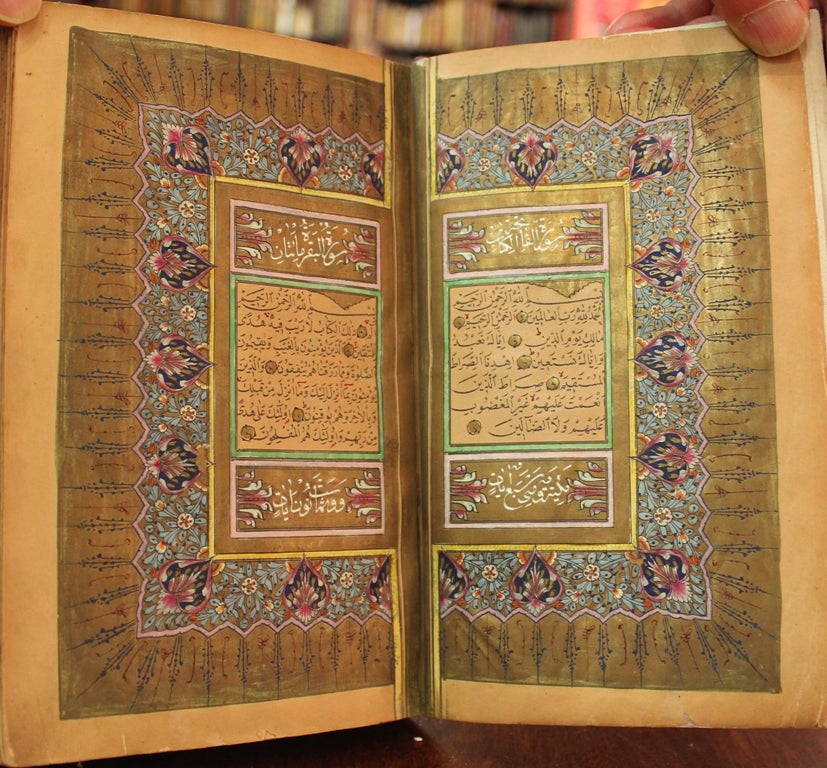 سورة الفاتحة الكتاب
بسم الله الرحمن الرحيم
الحمد لله رب العالمين الرحمن الرحيم
مالك يوم الدين اياك نعبد
واياك نستعين اهدنا الصراط
المستقيم صراط الذين
انعمت عليهم غير المغضوب
عليهم ولا الضالين
مكية وهي سبع ايات
سورة البقرة مائتان
بسم الله الرحمن الرحيم
الم ذلك الكتاب لا ريب فيه هدى
للمتقين الذين يؤمنون بالغيب ويقيمون
الصلوة ومما رزقناهم ينفقون والذين
يؤمنون بما انزل اليك وما انزل من قبلك
وبالاخرة هم يوقنون اولئك على هدى
من ربهم واولئك هم المفلحون
وثمانون ايات